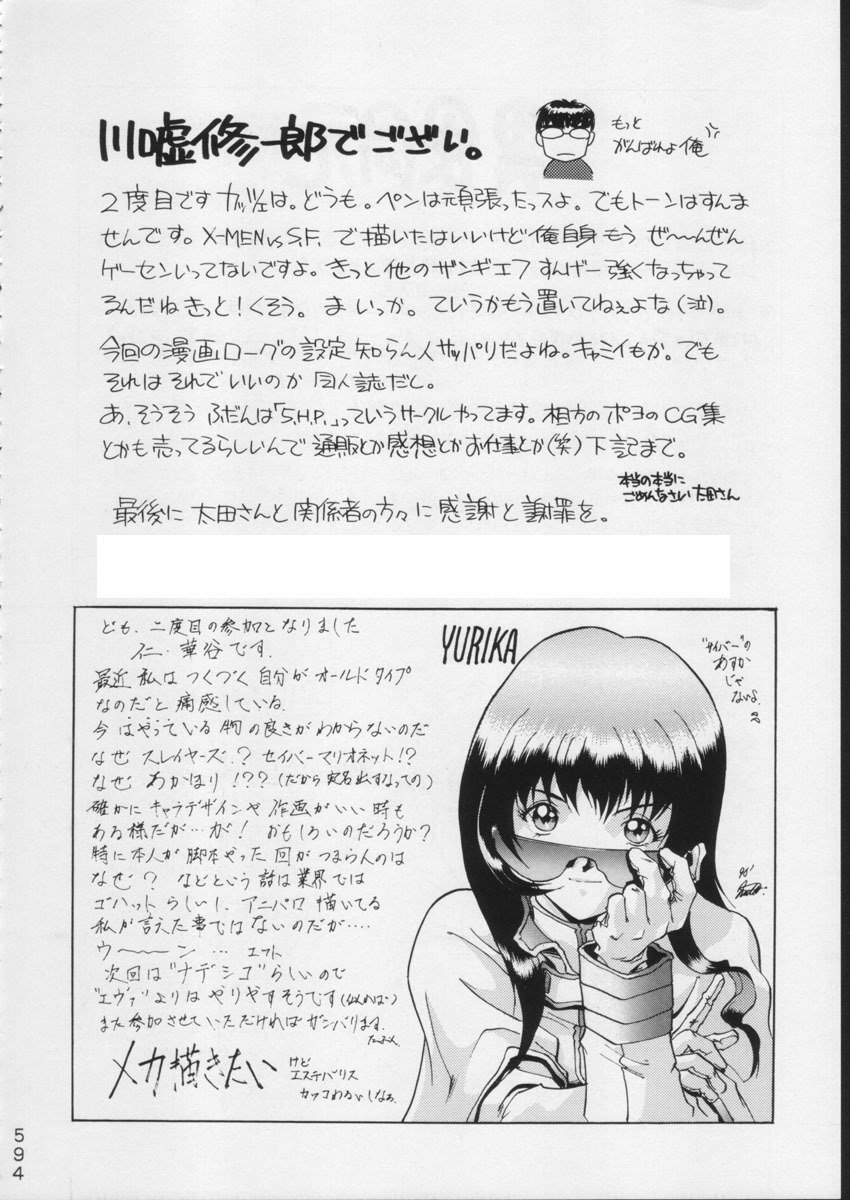 川嘘修一郎でござい。
もっと
がんばれよ俺
2度目です ガッツェは。どうも。ペンは頑張ったっスよ。でもトーンはすんま
せんです。X-MEN vs S.F. で描いたはいいけど俺自身もう ぜ〜〜んぜん
ゲーセンいってないですよ。きっと他のザンギエフ すんげー強くなっちゃって
るんだねきっと！くそう。 ま いっか。ていうかもう置いてねぇよな（泣）。
今回の漫画ローグの設定知らん人サッパリだよね。キャミイもか。でも
それはそれでいいのか 同人誌だし。
あ、そうそう ふだんは「S.H.P.」っていうサークルやってます。相方のポヨのCG集
とかも売ってるらしいんで 通販とか感想とかお仕事とか(笑)下記まで。
本当の本当に
ごめんなさい太田さん
最後に 太田さんと関係者の方々に感謝と謝罪を。
ども、二度目の参加となりました
仁・華谷です.
最近私はつくづく自分がオールドタイプ
なのだと痛感している.
今はやっている物の良さがわからないのだ
なぜ スレイヤーズ!? セイバーマリオネット!?
なぜ あかほり!??(だから実名出すなっての)
確かにキャラデザインや作画がいい時も
ある様だが…が! おもしろいのだろうか?
特に本人が脚本やった回がつまらんのは
なぜ? などという話は業界では
ゴハットらしいし、アニパロ描いてる
私が言えた事ではないのだが….
ウ〜〜〜ン …
次回は"ナデシコ"らしいので
"エヴァ"よりはやりやすそうです(似れば)
また参加させていただければガンバリます.
メカ描きたい
けど
エステバリス
カッコわるいしなぁ.
YURIKA
"サイバー"の
あすか
じゃ
ないよ.
594